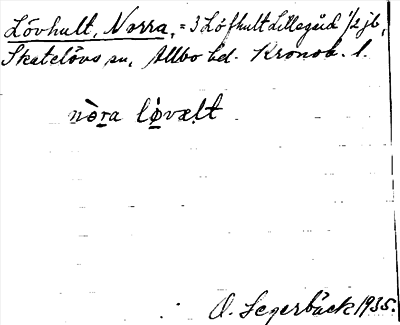 Lövhult, Norra, = 3 Löfhult Lillegård 1/2 jb,
Skatelövs sn, Allbo hd. Kronob. l.
nò̤ra lǿ̤væl̤t
O. Segerbäck 1935.